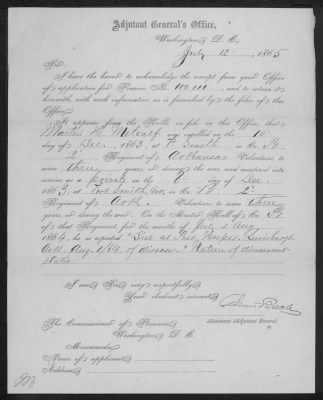 Adjutant General's Office,
Washington D. C.
July 12, 1865
Sir:
I have the honor to acknowledge the receipt from your Office
of application for Pension No. 100,111, and to return it
herewith, with such information as is furnished by the files of this
Office.
It appears from the Rolls on file in this Office, that
Martin H. Metcalf was enrolled on the 10"
day of Dec., 1863, at Ft. Smith in Co. B
2" Regiment of Arkansas Volunteers, to
serve three years, or during the war, and mustered into
service as a private on the day of Dec.
1863, at Fort Smith, Ark., in Co. B 2"
Regiment of Ark. Volunteers, to serve three
years, or during the war. On the Muster Roll of Co. B
of that Regiment, for the months of July & Aug.
1864, he is reported "Died at
Ark. Aug. 1/64, of disease." Nature of disease not
stated
I am, Sir, very respectfully,
Your obedient servant,
Assistant Adjutant General.
The Commissioner of Pensions,
Washington, D. C.
Memoranda:
Name of applicant
Address